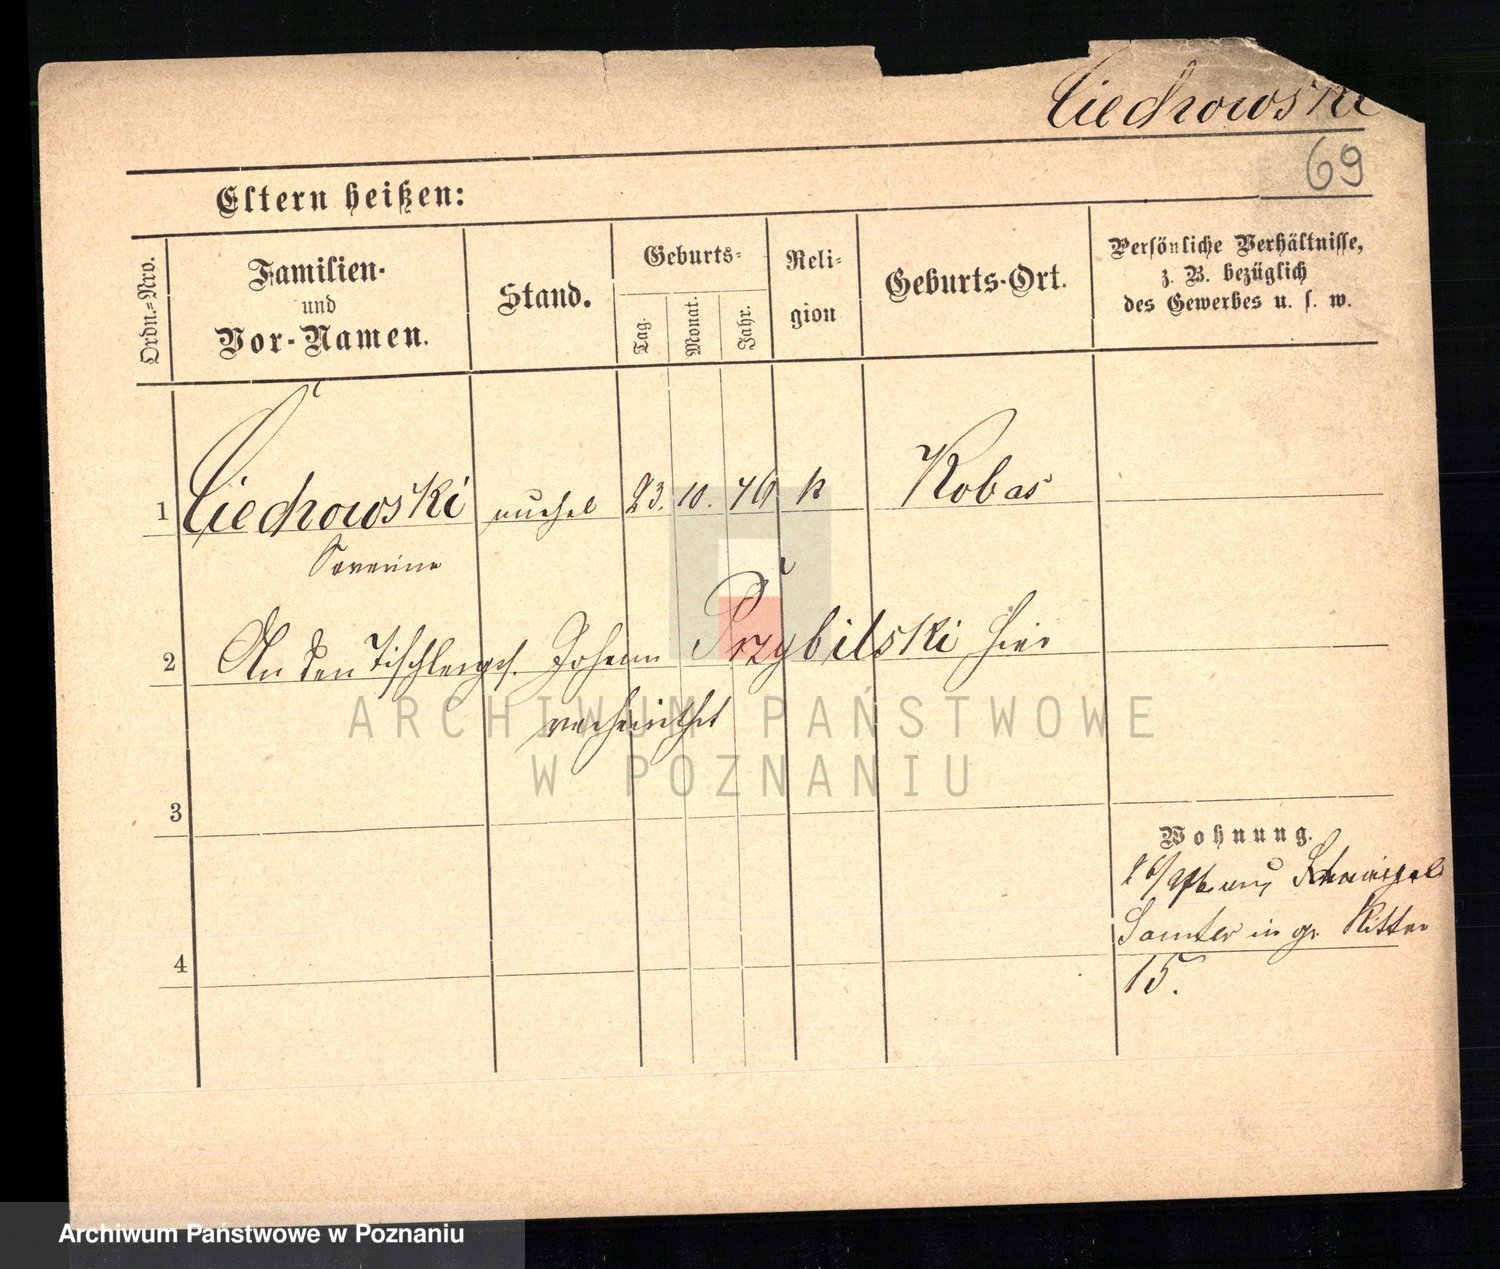 Ciechowski
69
Eltern heißen:
Ordn.-Nro.
Familien-
und
Vor-Namen.
Stand.
Geburts-
Tag.
Monat.
Jahr.
Reli-
gion
Geburts-Ort.
Persönliche Verhältnisse,
z. B. bezüglich
des Gewerbes u. s. w.
1 Ciechowski unehel 23. 10. 76 k Kobas
Severina
2 An den Tischlerges. Johann Przybilski hier
verheirathet
ARCHIWUM PAŃSTWOWE
W POZNANIU
3
Wohnung.
Samter in gr. Ritter
4
15.
Archiwum Państwowe w Poznaniu